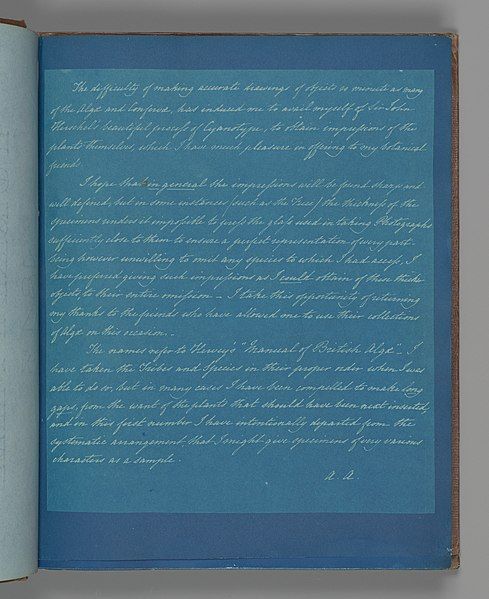 The difficulty of making accurate drawings of objects so minute as many
of the Algæ and Confervæ, has induced me to avail myself of Sir John
Herschel's beautiful process of Cyanotype, to obtain impressions of the
plants themselves, which I have much pleasure in offering to my botanical
friends.
I hope that in general the impressions will be found sharp and
well defined, but in some instances (such as the Fuci) the thickness of the
specimens renders it impossible to press the glass used in taking Photographs
sufficiently close to them to ensure a perfect representation of every part.
Being however unwilling to omit any species to which I had access, I
have preferred giving such impressions as I could obtain of these thicker
objects, to their entire omission – I take this opportunity of returning
my thanks to the friends who have allowed me to use their collections
of Algæ on this occasion. –
The names refer to Harvey's "Manual of British Algæ" – I
have taken the Tribes and Species in their proper order when I was
able to do so, but in many cases I have been compelled to make long
gaps, from the want of the plants that should have been next inserted,
and in this first number I have intentionally departed from the
systematic arrangement that I might give specimens of very various
characters as a sample.
A. A.